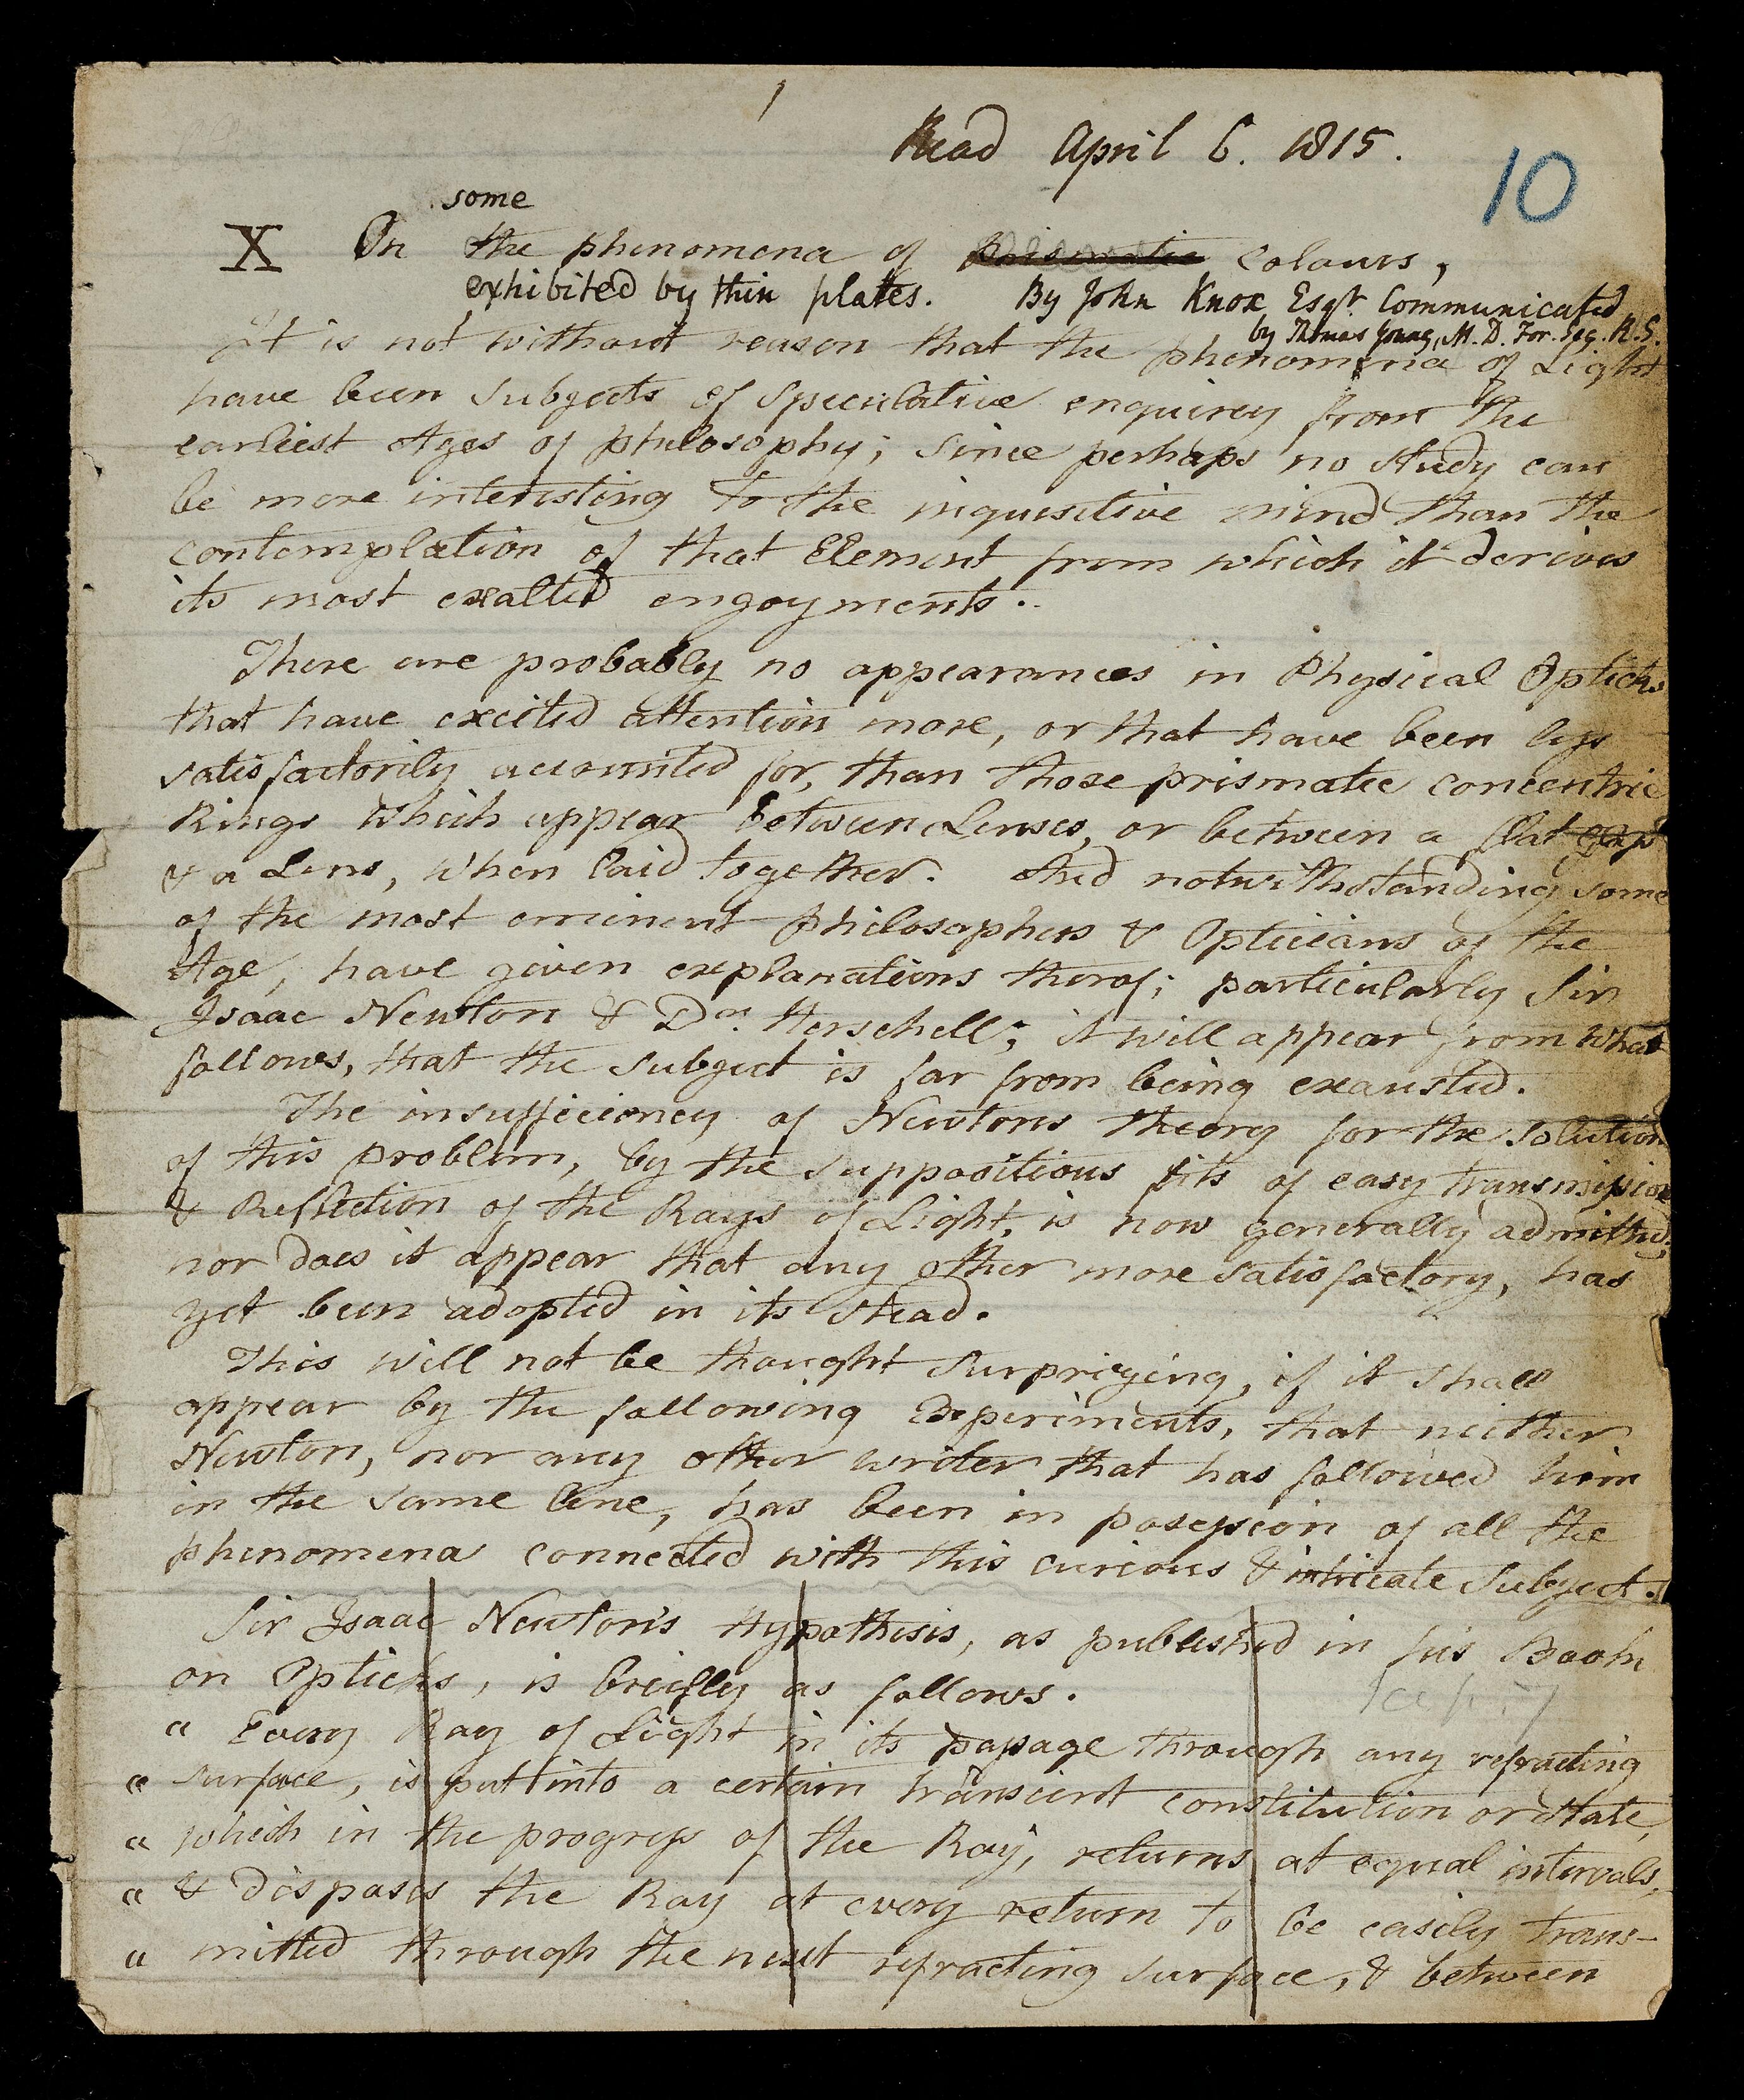 1
Read April 6. 1815.
10
some
X On the phenomena of prismatic colours,
exhibited by thin plates. By John Knox Esqr. Communicated
by Thomas Young, M. D. For. Sec. R. S.
It is not without reason that the phenomena of Light
have been subjects of speculative enquirey from the
earliest Ages of philosophy; since perhaps no study can
be more interesting to the inquisitive mind than the
contemplation of that Element from which it derives
its most exalted enjoyments.
There are probably no appearances in Physical Opticks
that have excited attention more, or that have been less
satisfactorily accounted for, than those prismatic concentric
Rings which appear between Lenses, or between a flat glass
& a Lens, when laid together. And notwithstanding some
of the most eminent philosophers & Opticians of the
Age, have given explanations therof; particularly Sir
Isaac Newton & Dr. Herschell; it will appear from what
follows, that the subject is far from being exausted.
The insufficiency of Newtons theory for the solution
of this problem, by the suppositious fits of easy transmission
& Reflection of the Rays of Light, is now generally admitted;
nor does it appear that any other more satisfactory, has
yet been adopted in its stead.
This will not be thought surprizing, if it shall
appear by the following Experiments, that neither
Newton, nor any other writer that has followed him
in the same line, has been in posession of all the
phenomena connected with this curious & intricate subject.
Sir Isaac Newton's Hypothisis, as published in his Book
on Opticks, is briefly as follows.
" Every Ray of Light in its passage through any refracting
" surface, is put into a certain transient constitution or state,
" which in the progress of the Ray, returns at equal intervals,
" & disposes the Ray at every return to be easily trans-
" mitted through the next refracting surface, & between